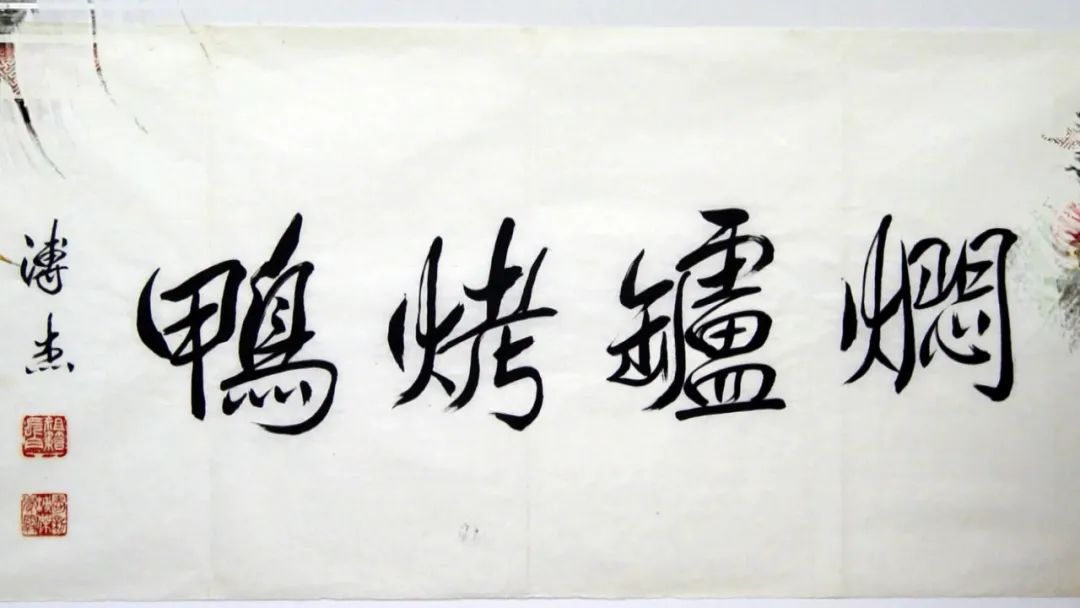 燜鑪烤鴨
溥杰